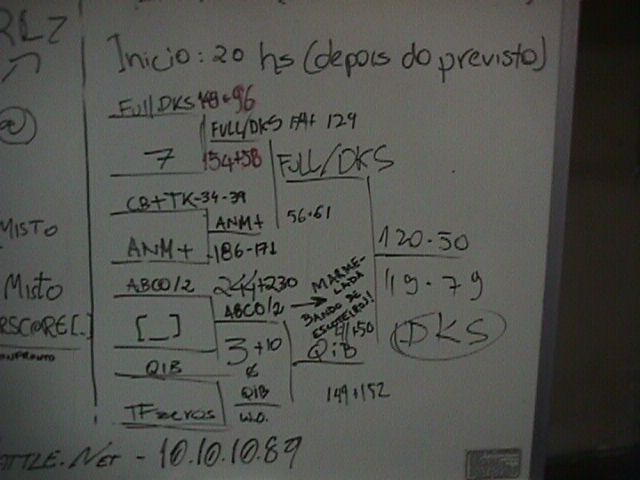 RLZ
Início: 20 hs (depois do previsto)
Full DKS 96
FULL/DKS 129
7
154+58
FULL/DKS
CB+TK-34-39
ANM+
56-61
MISTO
ANM+
186-171
120-50
ABCO/2
244+230
MARME-
LADA
Misto
ABCO/2 →
BANDO DE
ESCOTEIROS!!
19-79
RSCORE[..]
[_]
3+10
+50
QiB
DKS
QIB
QIB
149+152
TFzeros
W.O.
ATTLE.NET - 10.10.10.89